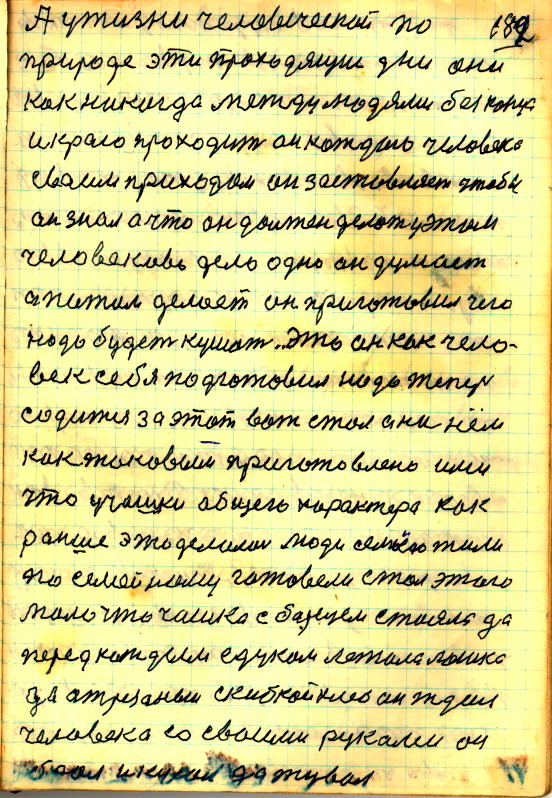 182
А у жизни человеческой по
природе эти проходящии дни они
как никогда между людями без конца
и краю проходит он каждого человека
сваим приходом он заставляет чтобы
он знал а что он должен делат у этом
человекавь дело одно он думает
а патом делает он приготовил чего
надо будет кушат. Это он как чело-
век себя подготовил надо тепер
садится за этот вот стол а на нём
как таковыи приготовлено или
что у чашки общего характера как
раньше это делали люди семьёю жили
по семейному готовели стол этого
мало что чашка с борщем стояла да
перед каждым едуком лежала ложка
да атрезаный скибкой хлеб он ждал
человека со своими руками он
брал и кусал да жувал